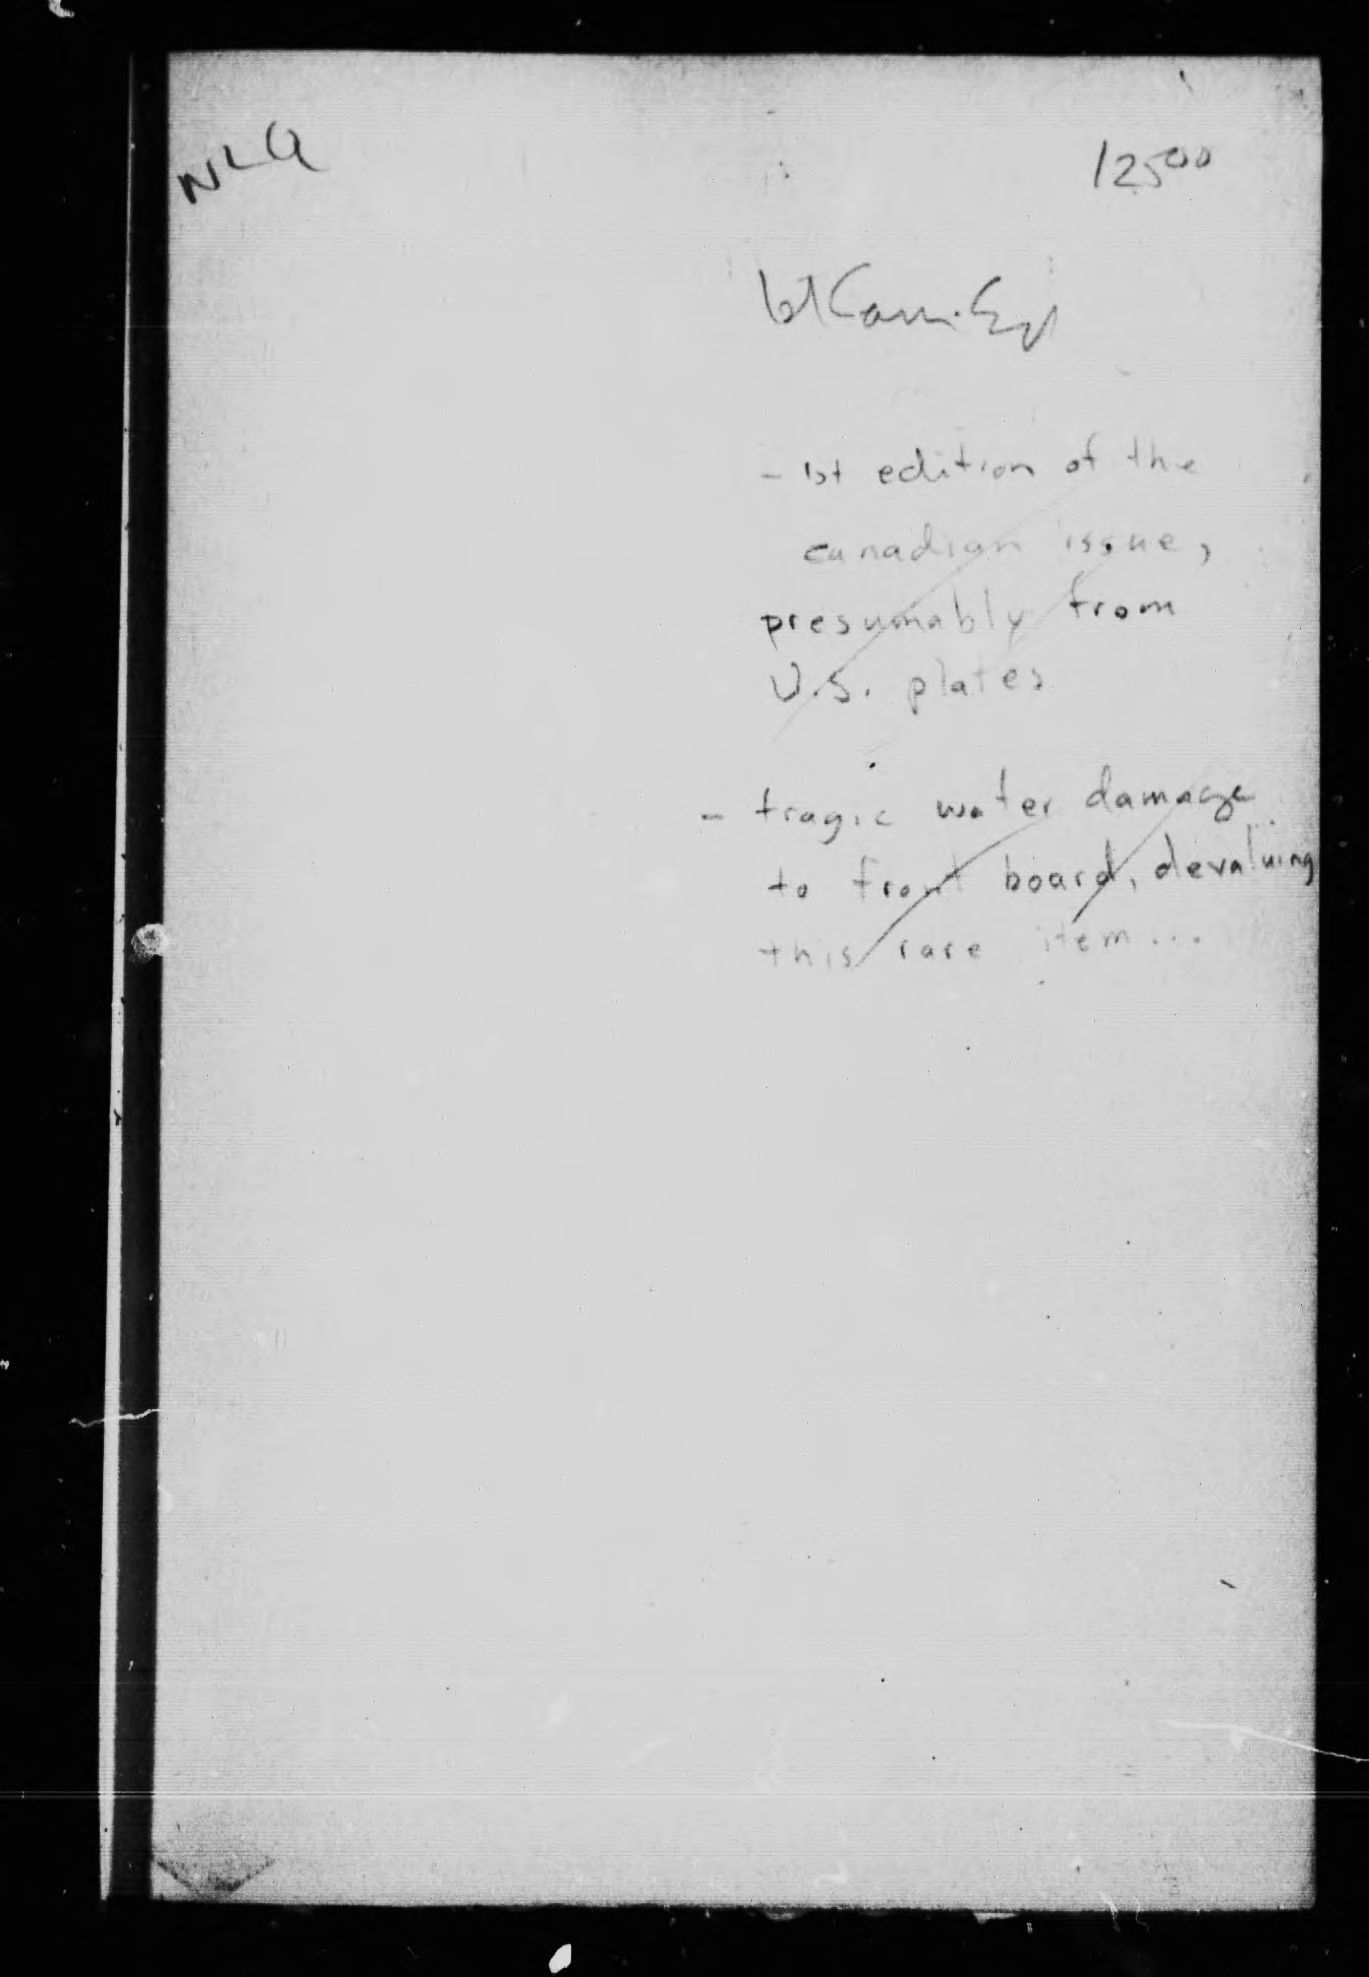 NLQ
125⁰⁰
1st Can. Ed
- 1st edition of the
canadian issue,
presumably from
U.S. plates
- tragic water damage
to front board, devaluing
this rare item...